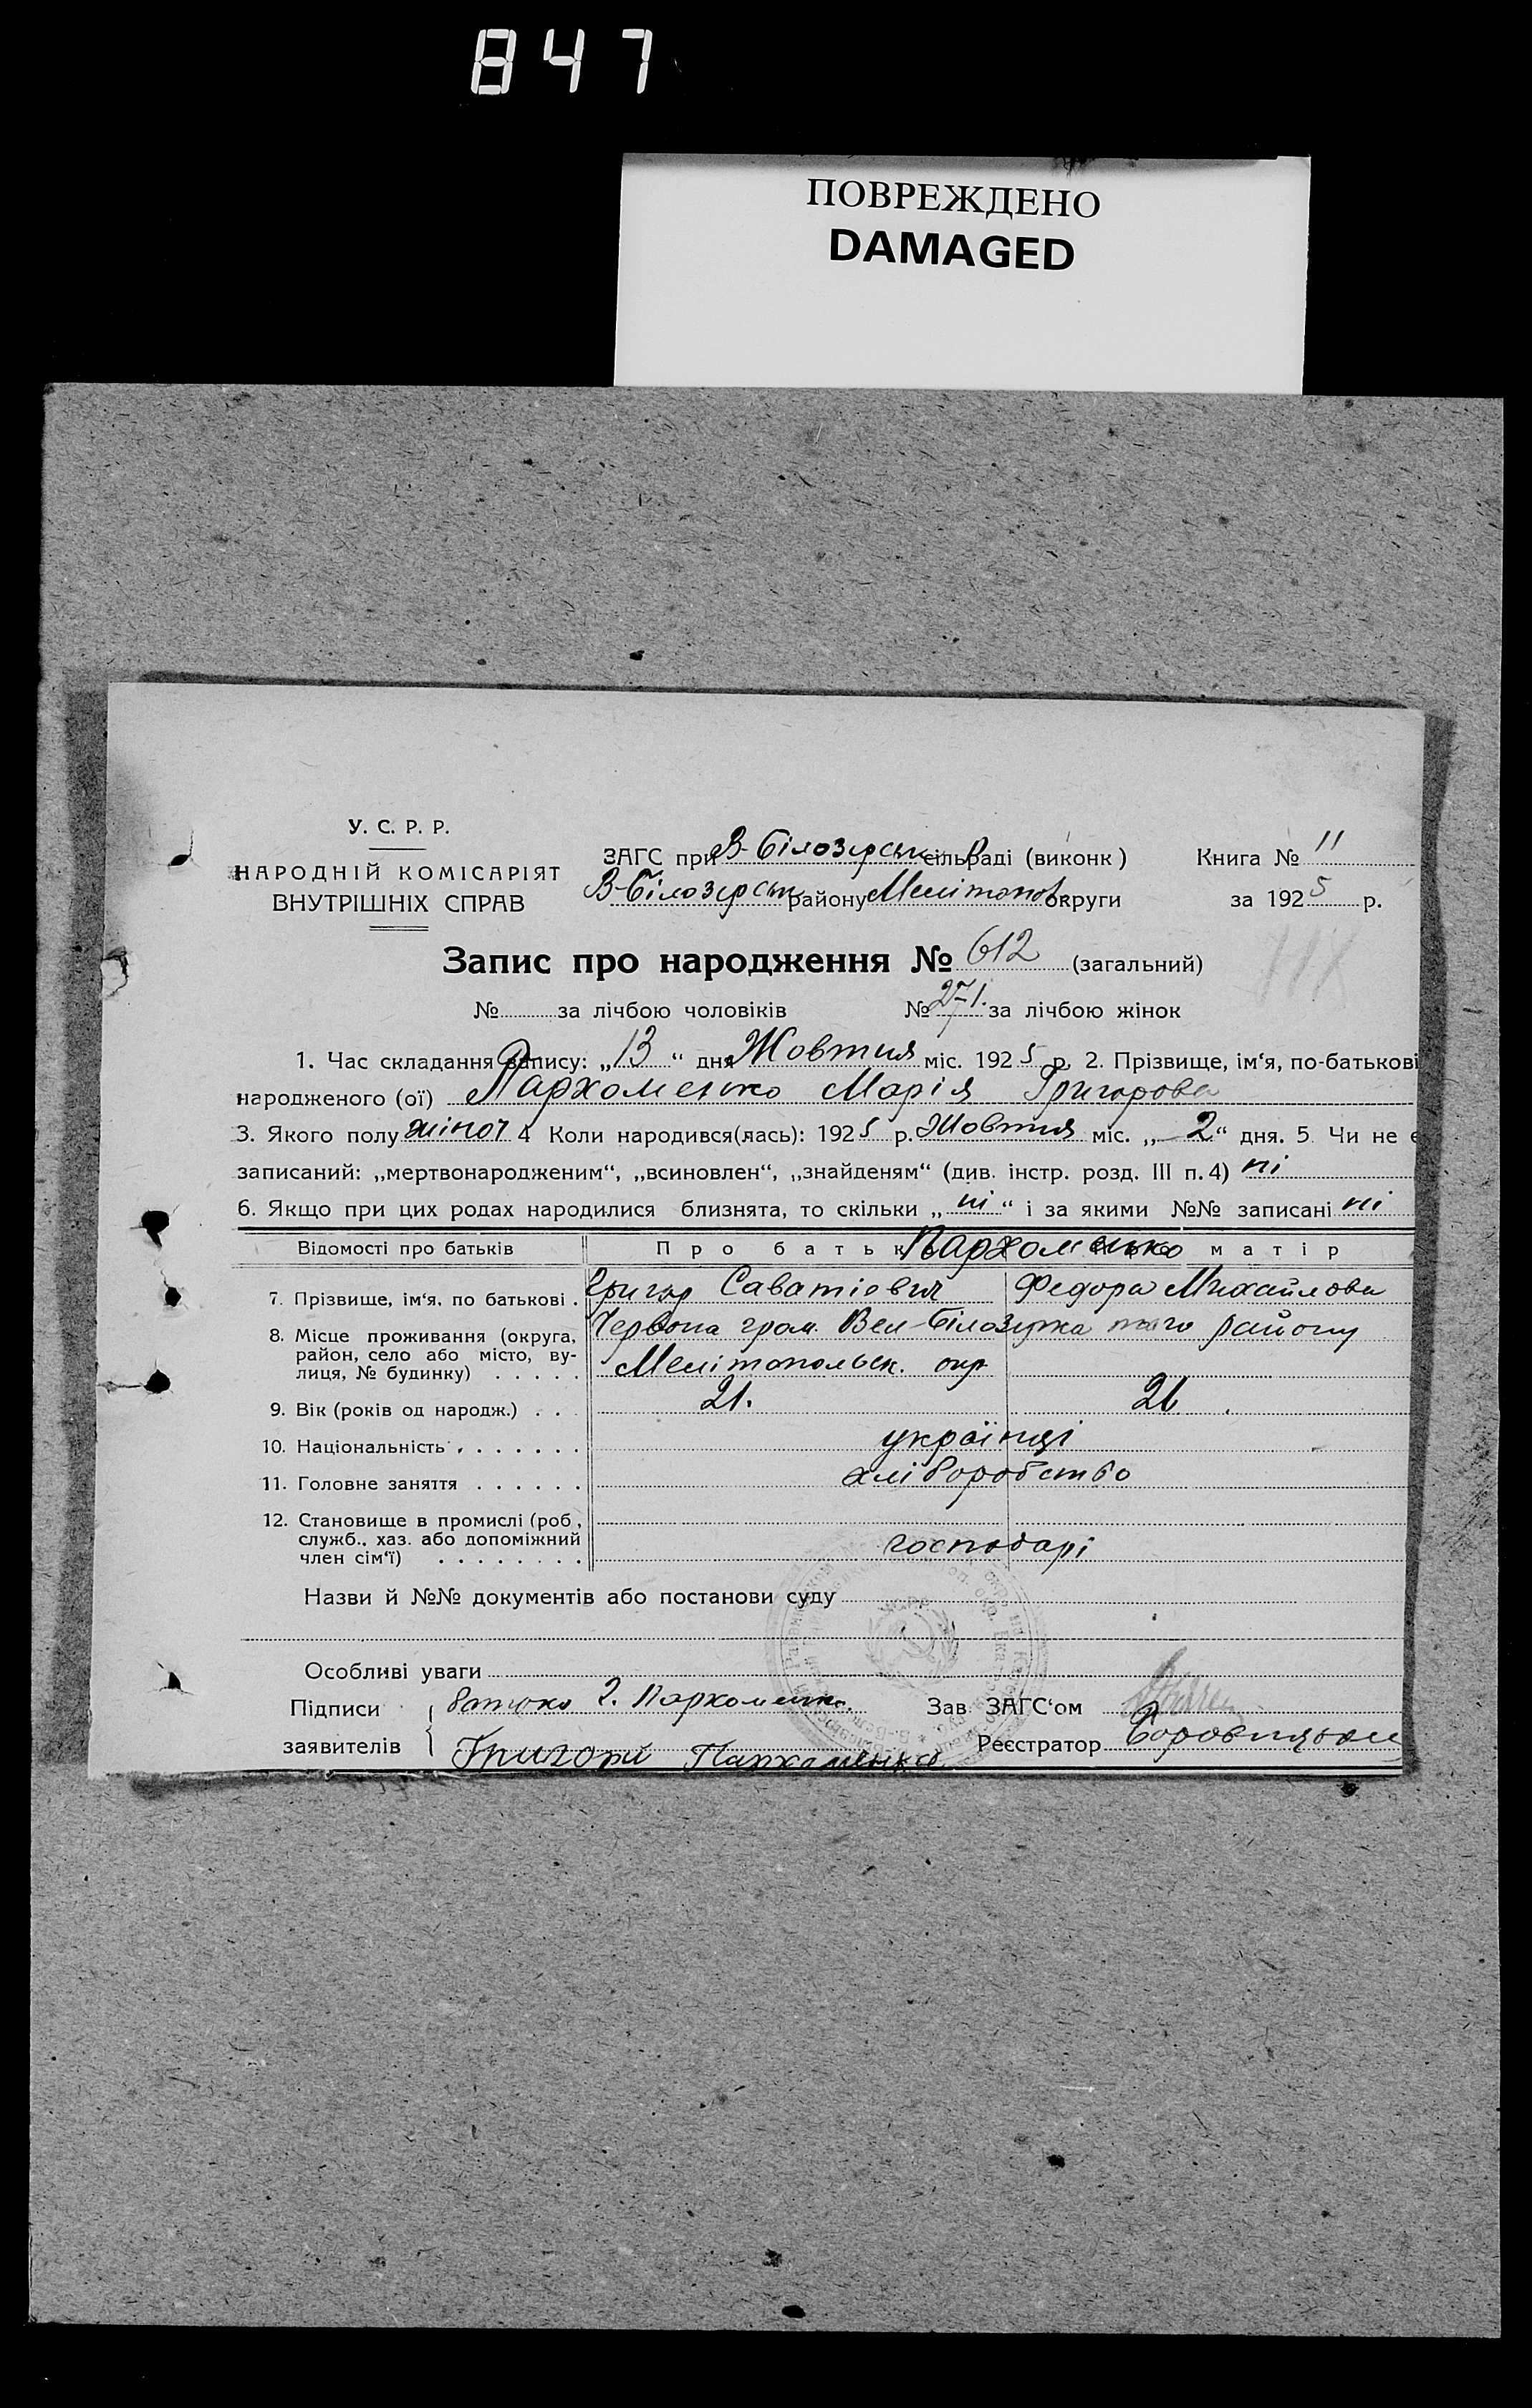 847
ПОВРЕЖДЕНО
DAMAGED
У. С. Р. Р.
НАРОДНІЙ КОМІСАРІЯТ
ВНУТРІШНІХ СПРАВ
ЗАГС при В-Білозерськ сільраді (виконк)
В-Білозерськ району Мелітопол округи
Книга № 11
за 1925 р.
Запис про народження № 612 (загальний)
118
№ за лічбою чоловіків № 271. за лічбою жінок
1. Час складання запису: „13“ дня Жовтня міс. 1925 р. 2. Прізвище, ім‘я, по-батькові
народженого (ої) Пархоменко Марія Григорова
3. Якого полу жіноч 4 Коли народився(лась): 1925 р. Жовтня міс. „2“ дня. 5 Чи не є
записаний: „мертвонародженим“, „всиновлен“, „знайденям“ (див. інстр. розд. III п. 4) ні
6. Якщо при цих родах народилися близнята, то скільки „ні“ і за якими №№ записані ні
Відомості про батьків Про батьк Пархоменко матір
7. Прізвище, ім‘я, по батькові . Григор Саватіевич Федора Михайлова
8. Місце проживання (округа, Червона гром. Вел-Білозерка того району
район, село або місто, ву-
лиця, № будинку) . . . . . Мелітопольськ. окр
9. Вік (років од народж.) . . . 21. 21
10. Національність . . . . . . . українці
11. Головне заняття . . . . . . хліборобство
12. Становище в промислі (роб.,
служб., хаз. або допоміжний
член сім‘ї) . . . . . . . . господарі
Назви й №№ документів або постанови суду
Особливі уваги
Підписи батько Г. Пархоменко Зав ЗАГС‘ом
заявителів Григорій Пархоменко Реєстратор